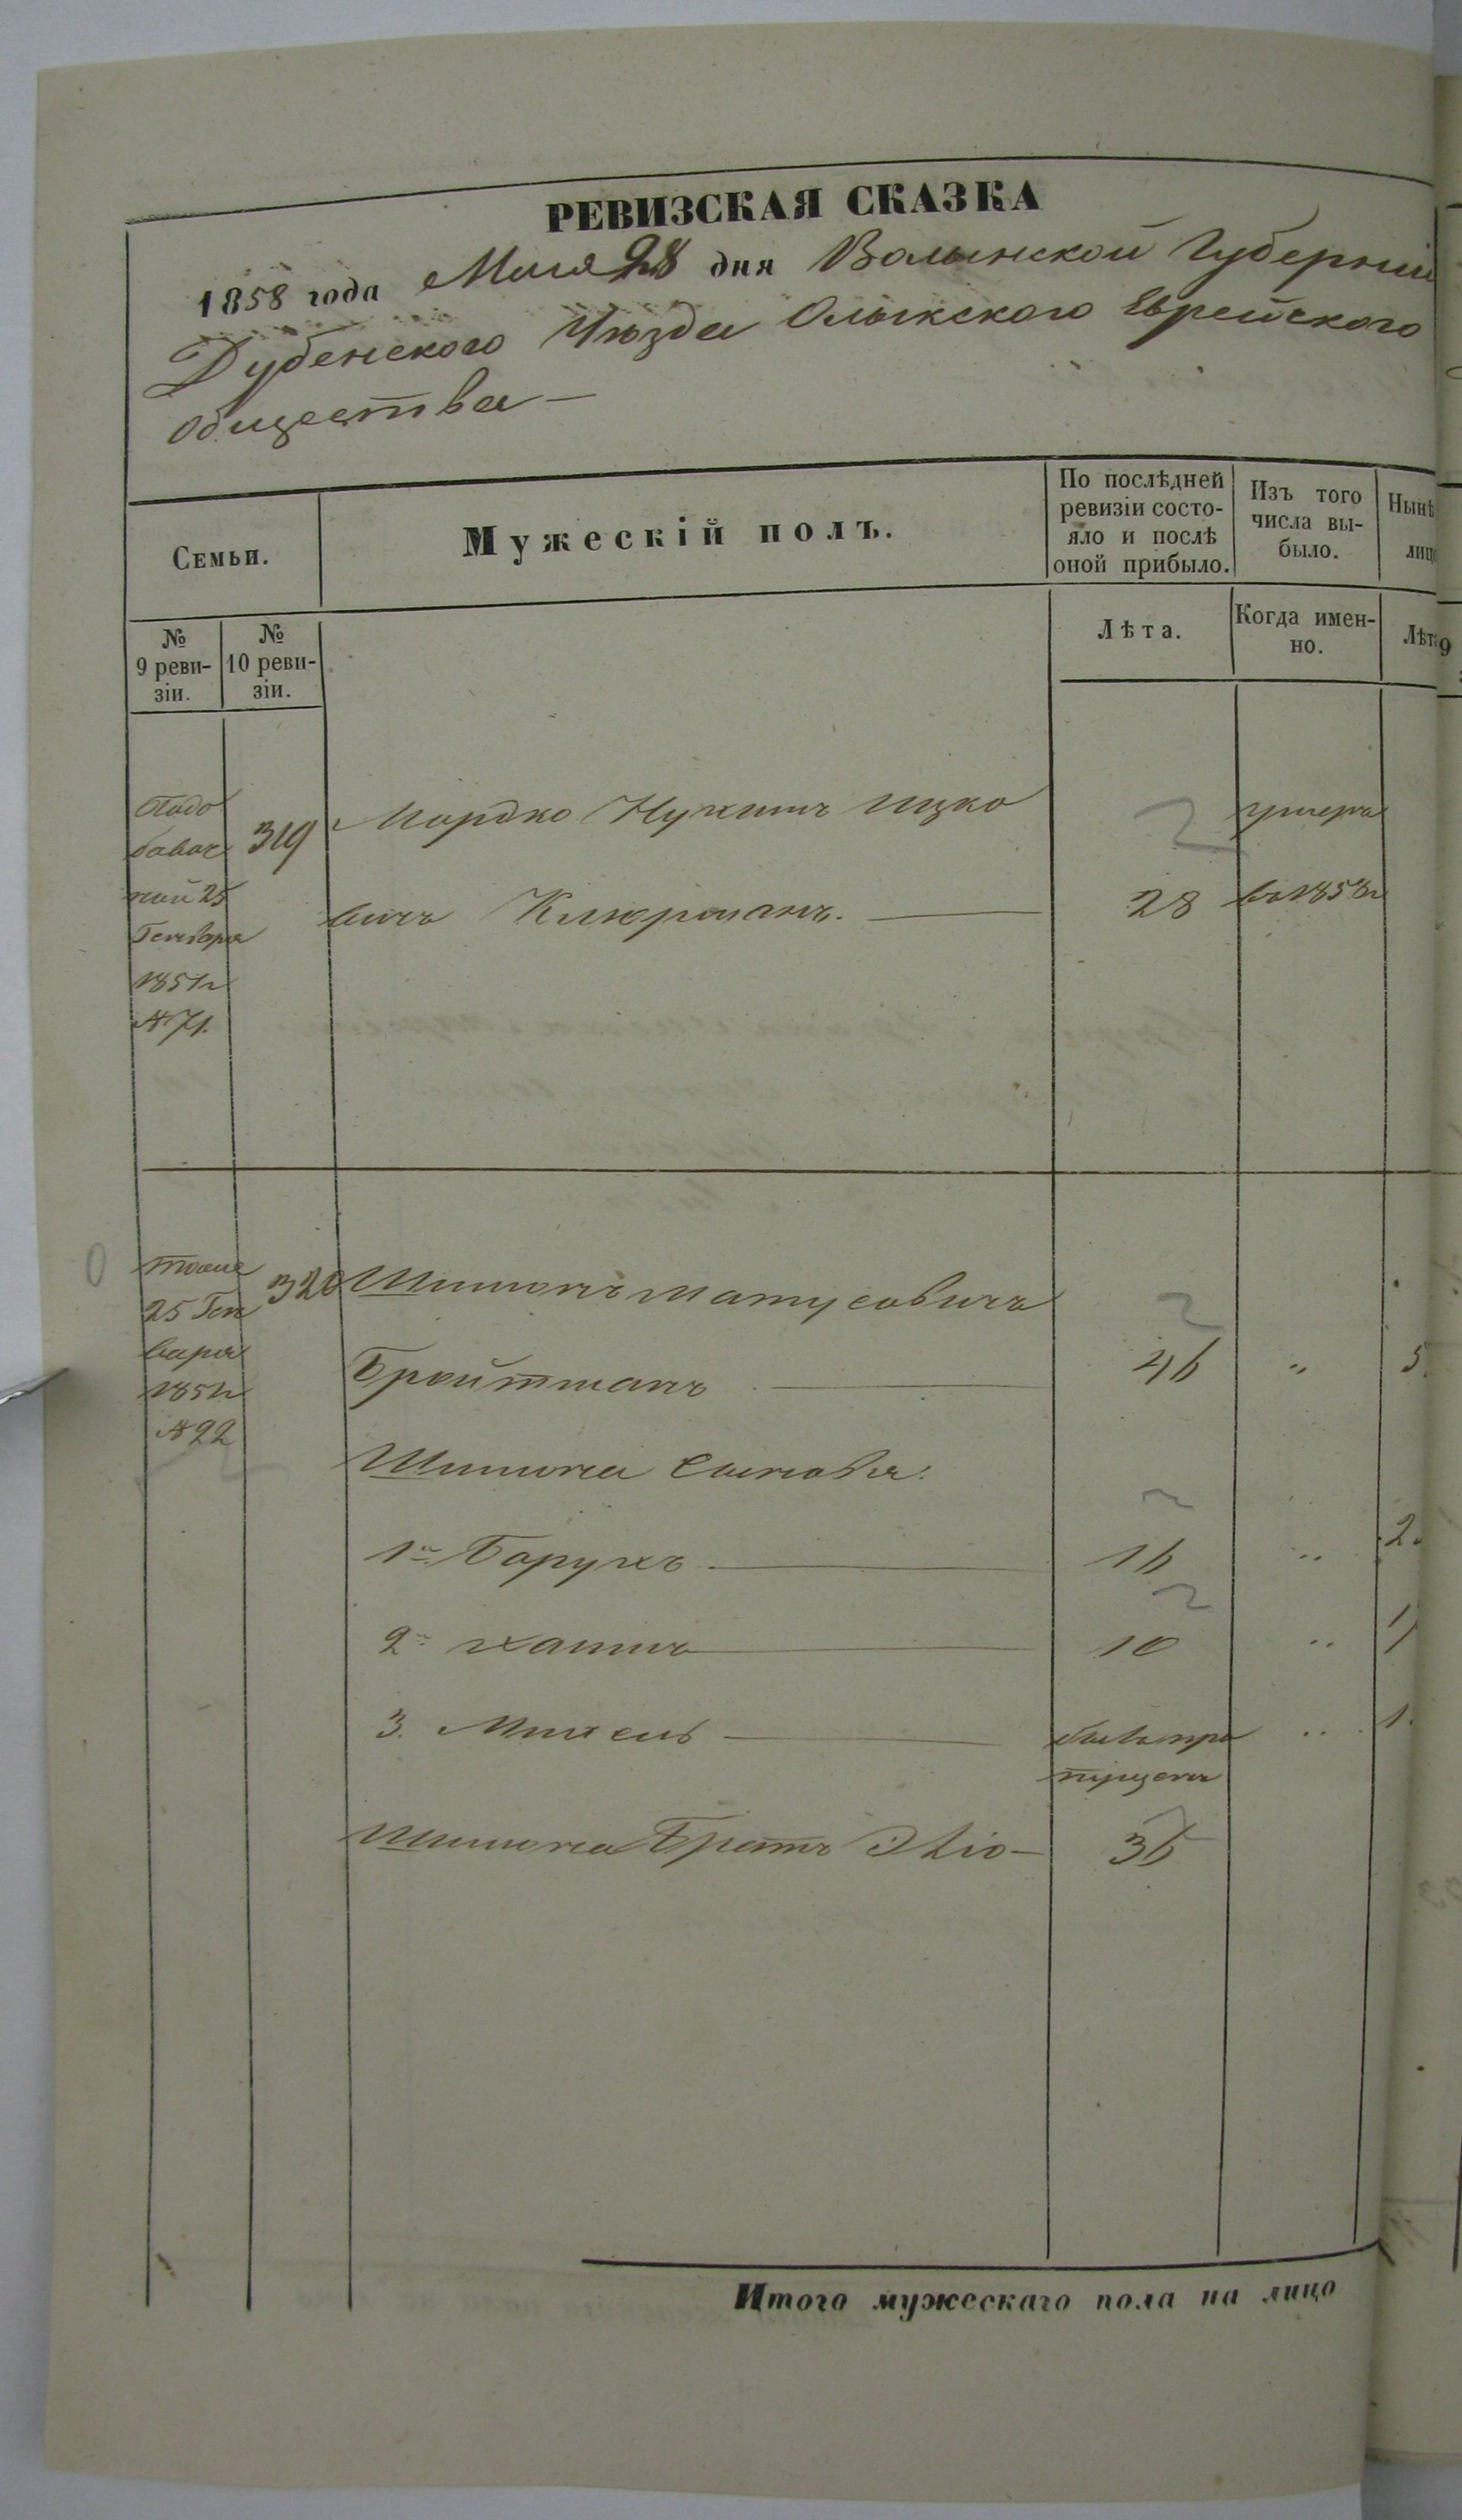 РЕВИЗСКАЯ СКАЗКА
1858 года Мая 28 дня Волынской Губерніи
Дубенского Уѣзда Олыкского Еврейского
общества —
Семьи.
Мужескій полъ.
По послѣдней ревизіи состо-
яло и послѣ
оной прибыло.
Изъ того
числа вы-
было.
Нынѣ
лицо
№
9 реви-
зіи.
№
10 реви-
зіи.
Лѣта.
Когда имен-
но.
Лѣт
Подо
бавоч
ной 25
Генваря
1851г
№ 71.
319
Мордко Нухимъ Ицко
вичъ Клюрманъ. —
28
умеръ
въ 1858г
тоже
25 Ген
варя
1851г
№ 22
320
Шимонъ Матусовичъ
Бройтманъ —
46
"
5
Шимона Сыновья:
1й Борухъ —
16
"
2.
2й Хаимъ —
10
"
1
3. Михель —
былъ про
пущенъ
"
1.
Шимона Братъ Эліо —
36
Итого мужескаго пола на лицо